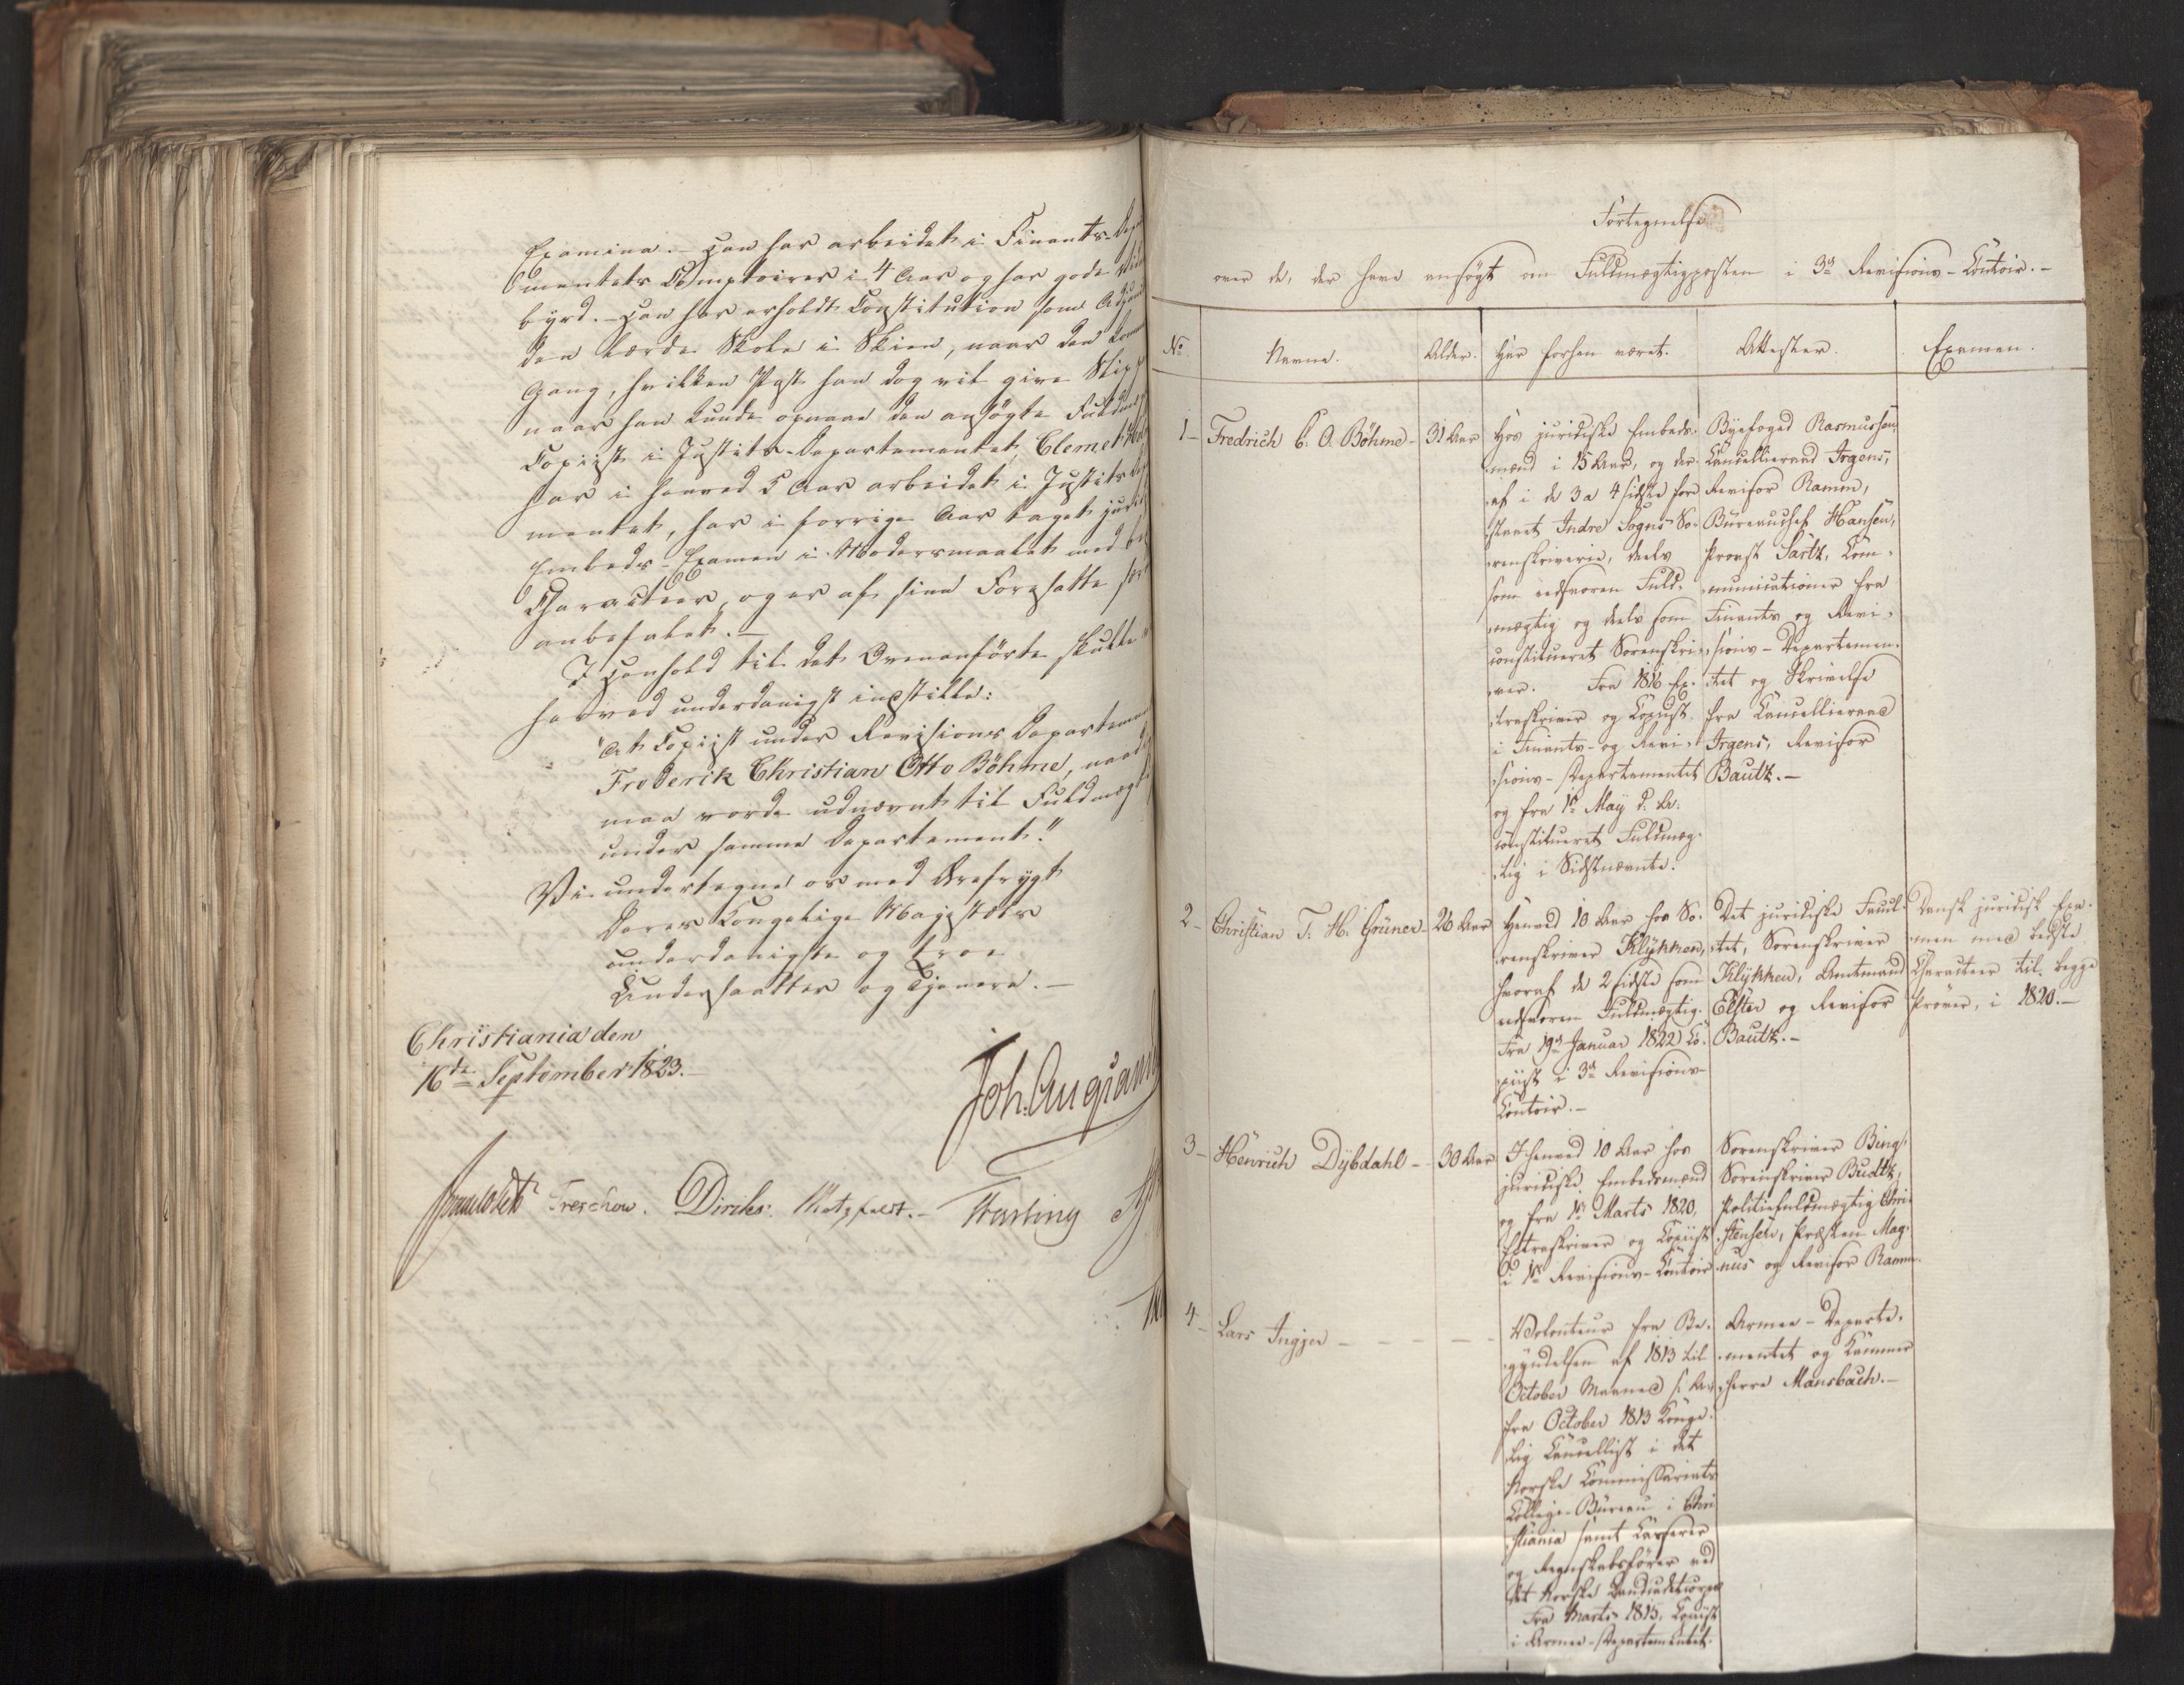 Examina. – Han har arbeidet i Finants-Depar
mentets Comptoirer i 4 Aar og har gode Vidnes
byrd. – Han har erholdt Constitution som Adjunct
den lærde Skole i Skien, naar den kommer
Gang, hvilken Post han dog vil give Slip
naar han kunde opnaae den ansøgte Fuldmæg
Copiist i Justits-Departementet, Clemet
har i henved 5 Aar arbeidet i Justits-Dep
mentet, har i forrige Aar taget juridisk
Embeds-Examen i Modersmaalet med
Characteer, og er af sine Foresatte
anbefalet. –
I Henhold til det Ovenanførte skulle
herved underdanigst indstille:
"At Copiist under Revisions Departementet
Frederik Christian Otto Böhme, naadigst
maa vorde udnævnt til Fuldmægtig
under samme Departement."
Vi undertegne os med Ærefrygt
Deres Kongelige Majestæts
underdanigste og troe
Undersaatter og Tjenere. –
Christiania den
16de September 1823. –
Joh. Aug Sand
Sommerhielm Treschow. Diriks. Motzfeldt. – Fasting
Fortegnelse
over de, der have ansøgt om Fuldmægtigposten i 3die Revisions-Contoir. –
No. Navne. Alder. Har forhen været. Attester. Examen.
1 – Fredrich C. O. Böhme – 31 Aar
Hos juridiske Embeds-
mænd i 15 Aar, og der-
af i de 3 a 4 sidste fore
staaet Indre Sogns So-
renskriverie, deels
som eedsvoren Fuld-
mægtig og deels som
constitueret Sorenskri-
ver. Fra 1816 Ex-
traskriver og Copiist
i Finants- og Revi-
sions-Departementet
og fra 1ste May d. A.
constitueret Fuldmæg-
tig i Sidstnævnte.
Byefoged Rasmussen,
Cancellieraad Irgens,
Revisor Ramm,
Büreauchef Hansen,
Provst Sartz, Com-
municationer fra
Finants og Revi-
sions-Departemen-
tet og Skrivelse
fra Cancellieraad
Irgens, Revisor
Bautz. –
2 – Christian T. H. Grüner – 26 Aar
Henved 10 Aar hos So-
renskriver Klykken,
hvoraf de 2 sidste som
eedsvoren Fuldmægtig.
Fra 19de Januar 1822 Co-
piist i 3die Revisions-
Contoir. –
Det juridiske Facul-
tet, Sorenskriver
Klykken, Amtmand
Elster og Revisor
Bautz. –
Dansk juridisk Exa-
men med bedste
Characteer til begge
Prøver, i 1820. –
3 – Henrich Dybdahl – 30 Aar
I henved 10 Aar hos
juridiske Embedsmænd
og fra 1ste Marts 1820,
Extraskriver og Copiist
i 1ste Revisions-Contoir
Sorenskriver Bing,
Sorenskriver Budtz,
Politiefuldmægtig Chri-
stensen, Præsten Mag-
nus og Revisor Ramm.
4 – Lars Ingjer – – – – –
Volonteur fra Be-
gyndelsen af 1813 til
October Maaned s. A.,
fra October 1813 Konge-
lig Cancellist i det
Norske Commissariats
Collegi-Büreau i Chri
stiania samt Casserer
og Regnskabsfører ved
det Norske Landcadetcorps
Fra Marts 1815, Copiist
i Armee-Departementet.
Armee-Departe-
mentet og Kammer
herre Mansbach. –